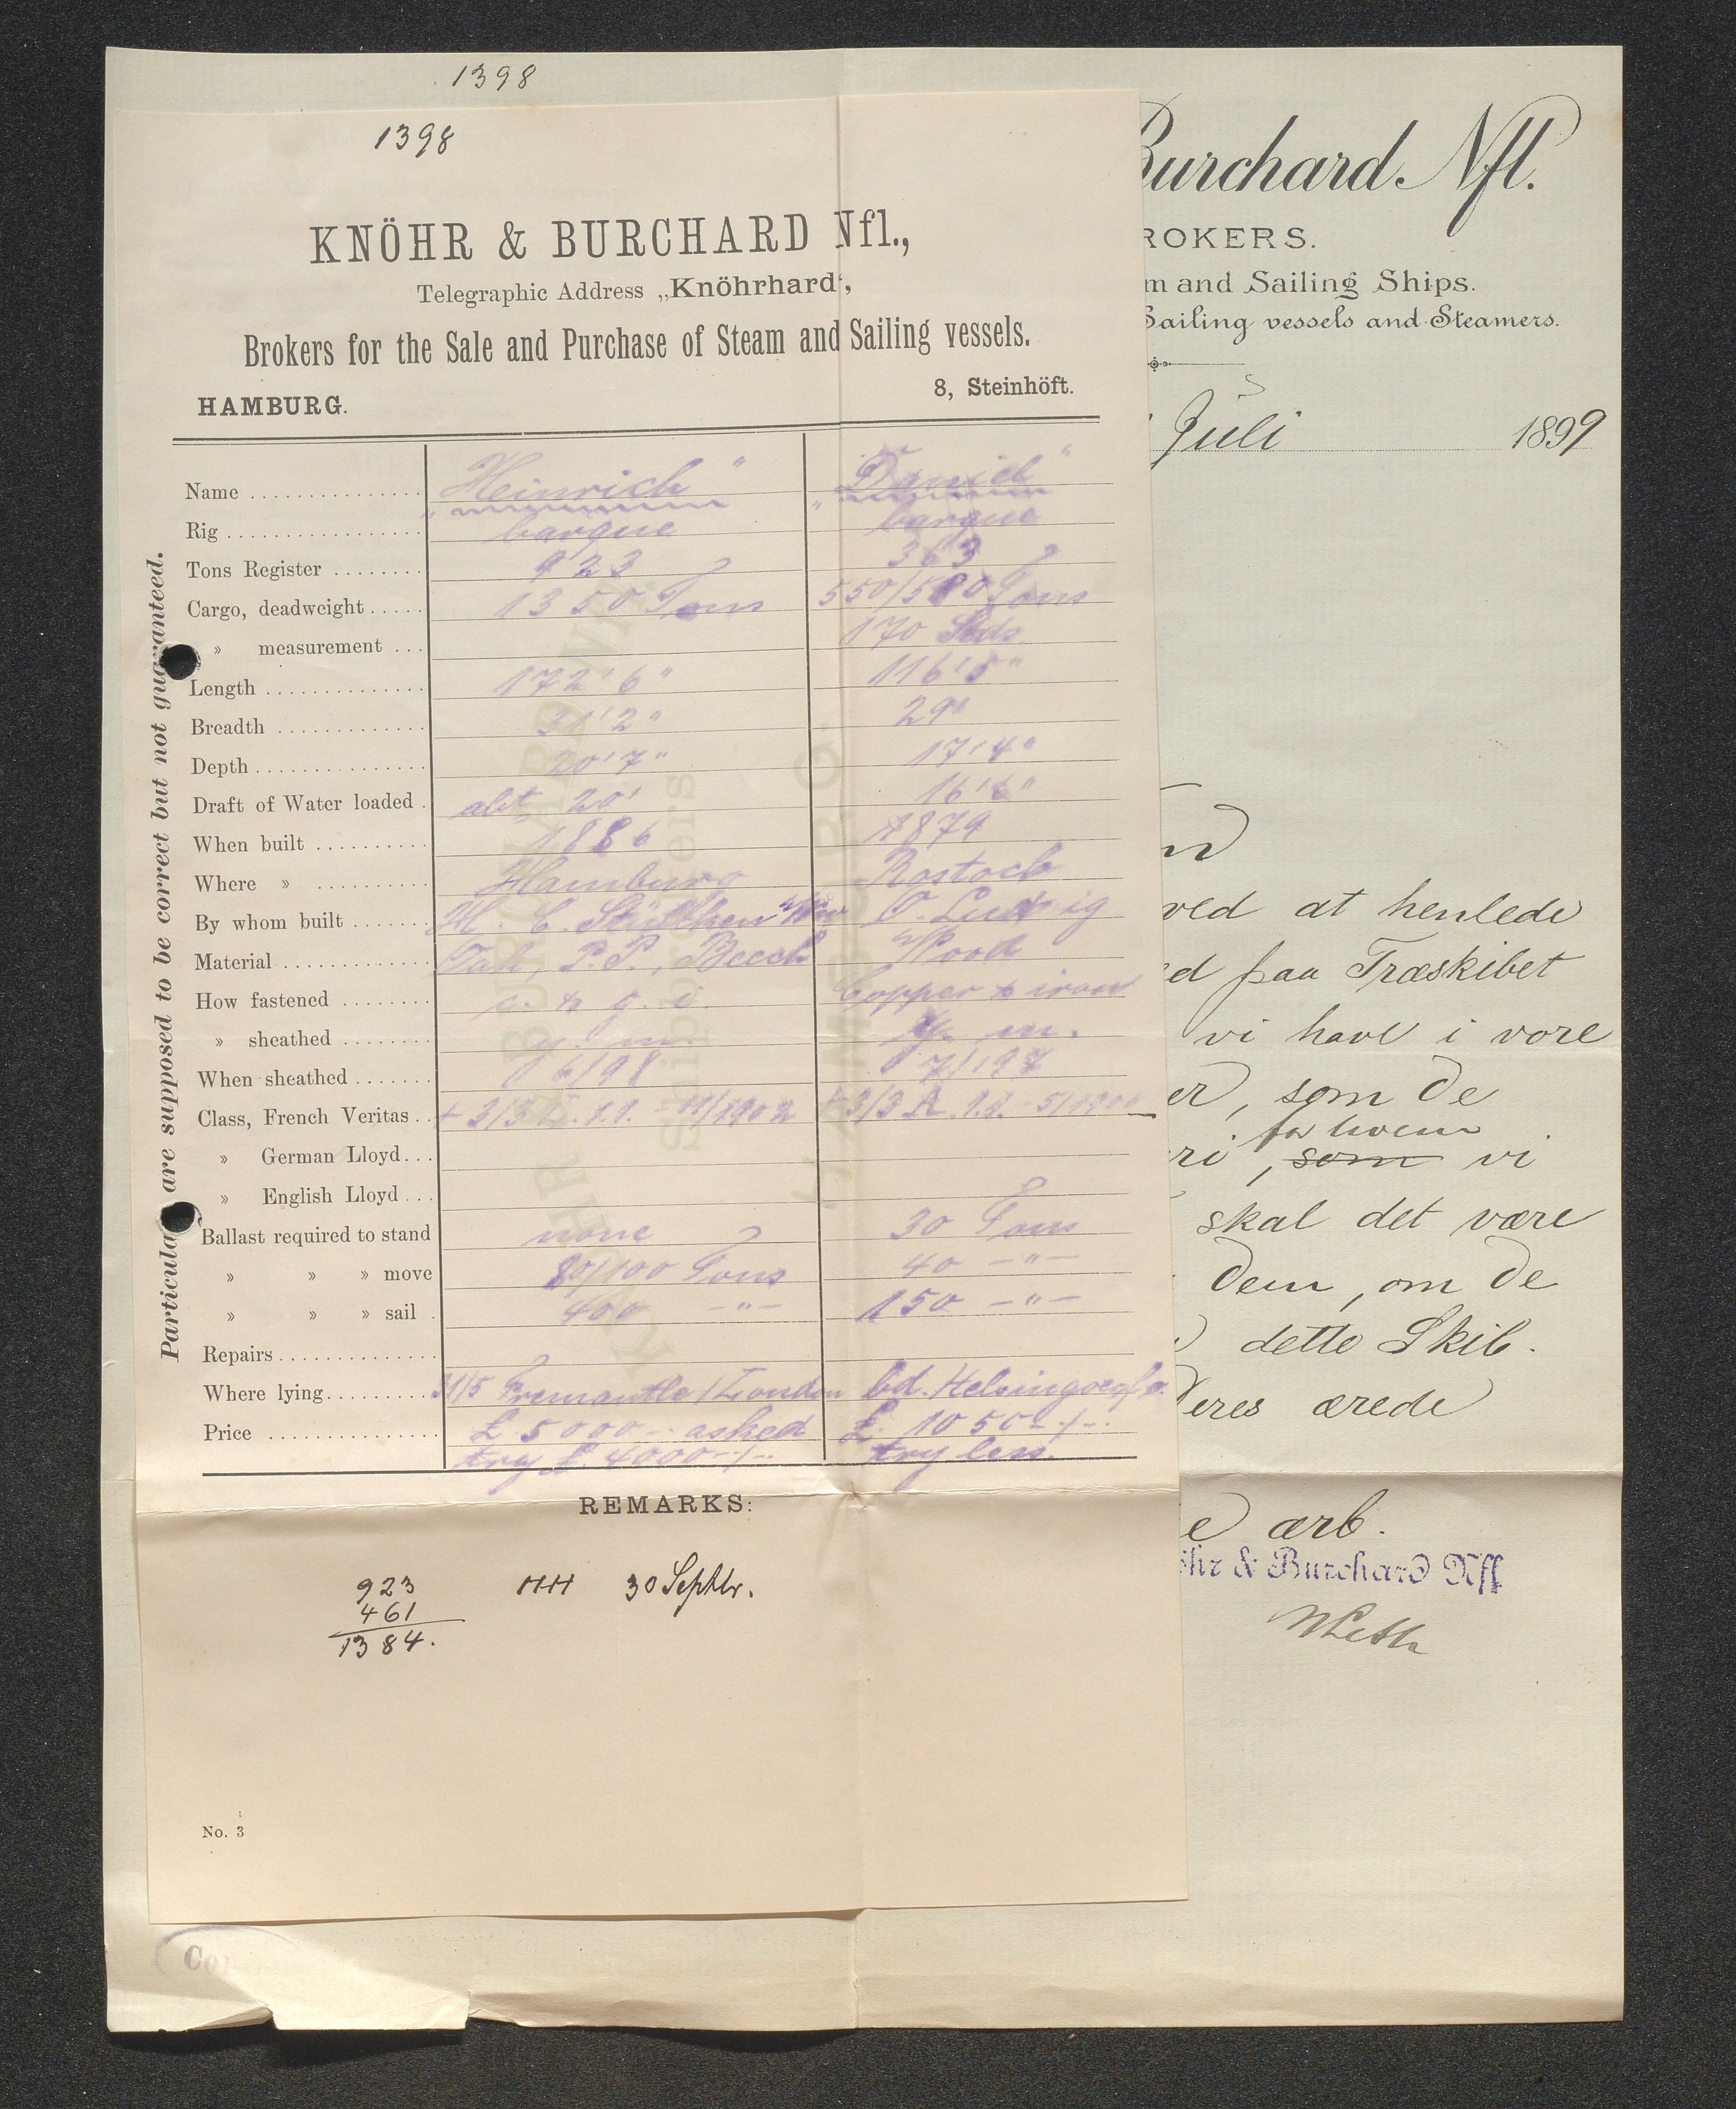 1398
1398
KNÖHR & BURCHARD Nfl.,
Telegraphic Address „Knöhrhard“,
Brokers for the Sale and Purchase of Steam and Sailing vessels.
HAMBURG.
8, Steinhöft.
Particulars are supposed to be correct but not guaranteed.
Name "Heinrich" "Daniel"
Rig barque barque
Tons Register 923 363
Cargo, deadweight 1350 Tons 550/580 Tons
» measurement 170 Stds
Length 172' 6" 116'5"
Breadth 31'2" 29'
Depth 20'7" 17'4"
Draft of Water loaded abt 20' 16'6"
When built 1886 1879
Where » Hamburg Rostock
By whom built H. C. Stülcken O. Ludwig
Material Oak, P.P., Beech Wood
How fastened c. & g. i. Copper & iron
» sheathed y. m. y. m.
When sheathed 6/98 7/197
Class, French Veritas + 3/3 1.1. - 11/1902 + 3/3 A. 1.1. - 5/1900
» German Lloyd
» English Lloyd
Ballast required to stand none 30 Tons
» » » move 80/100 Tons 40 -"-
» » » sail 400 -"- 150 -"-
Repairs
Where lying 31/5 Fremantle / London bd. Helsingoer f. o.
Price £ 5000 -. asked £. 1050-/-.
try £. 4000-/-. try less.
REMARKS:
923 HH 30 Septbr.
461
1384.
No. 3
Burchard Nfl.
ROKERS.
m and Sailing Ships.
Sailing vessels and Steamers.
Juli 1899
ved at henlede
ed paa Træskibet
vi have i vore
er, som De
for hvem
ri, som vi
skal det være
Dem, om De
dette Skib.
Deres ærede
e ærb.
öhr & Burchard Nfl
Co